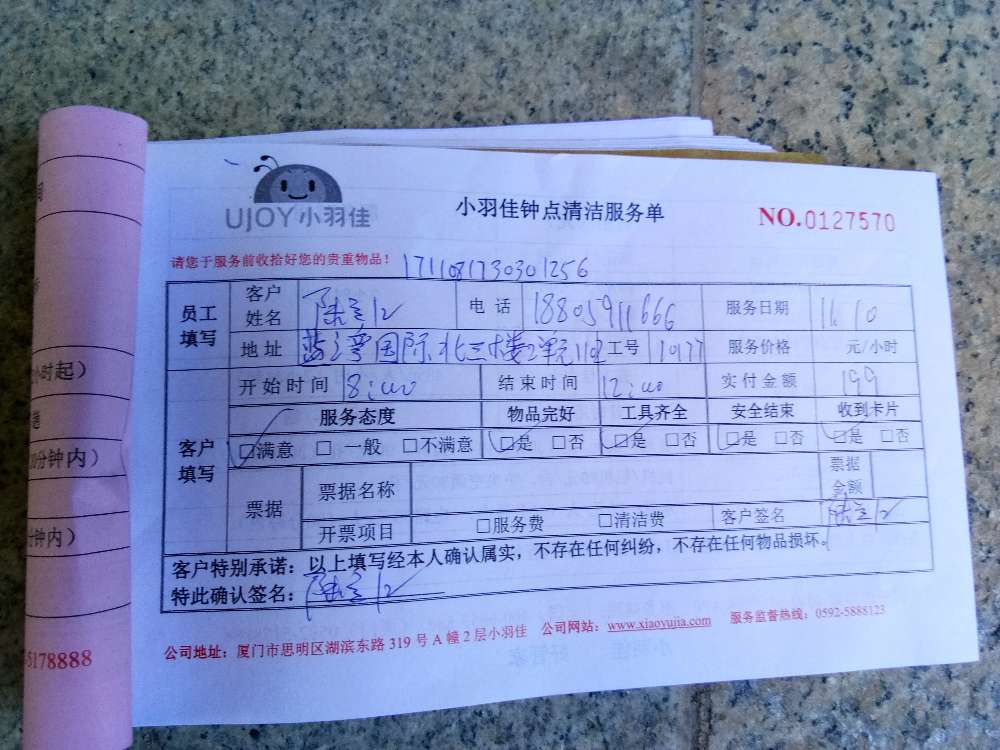 UJOY小羽佳
小羽佳钟点清洁服务单
NO.0127570
请您于服务前收拾好您的贵重物品！ 1711081730301256
员工填写 客户姓名 电话 18805911666 服务日期 11.10
地址 蓝 国际北三楼2单元 工号 10177 服务价格 元/小时
客户填写 开始时间 8:00 结束时间 12:00 实付金额 199
服务态度 物品完好 工具齐全 安全结束 收到卡片
□满意 □一般 □不满意 □是 □否 □是 □否 □是 □否 □是 □否
票据 票据名称 票据金额
开票项目 □服务费 □清洁费 客户签名
客户特别承诺：以上填写经本人确认属实，不存在任何纠纷，不存在任何物品损坏。
特此确认签名：
公司地址：厦门市思明区湖滨东路319号A幢2层小羽佳 公司网站：www.xiaoyujia.com 服务监督热线：0592-5888123
小时起）
分钟内）
分钟内）
5178888